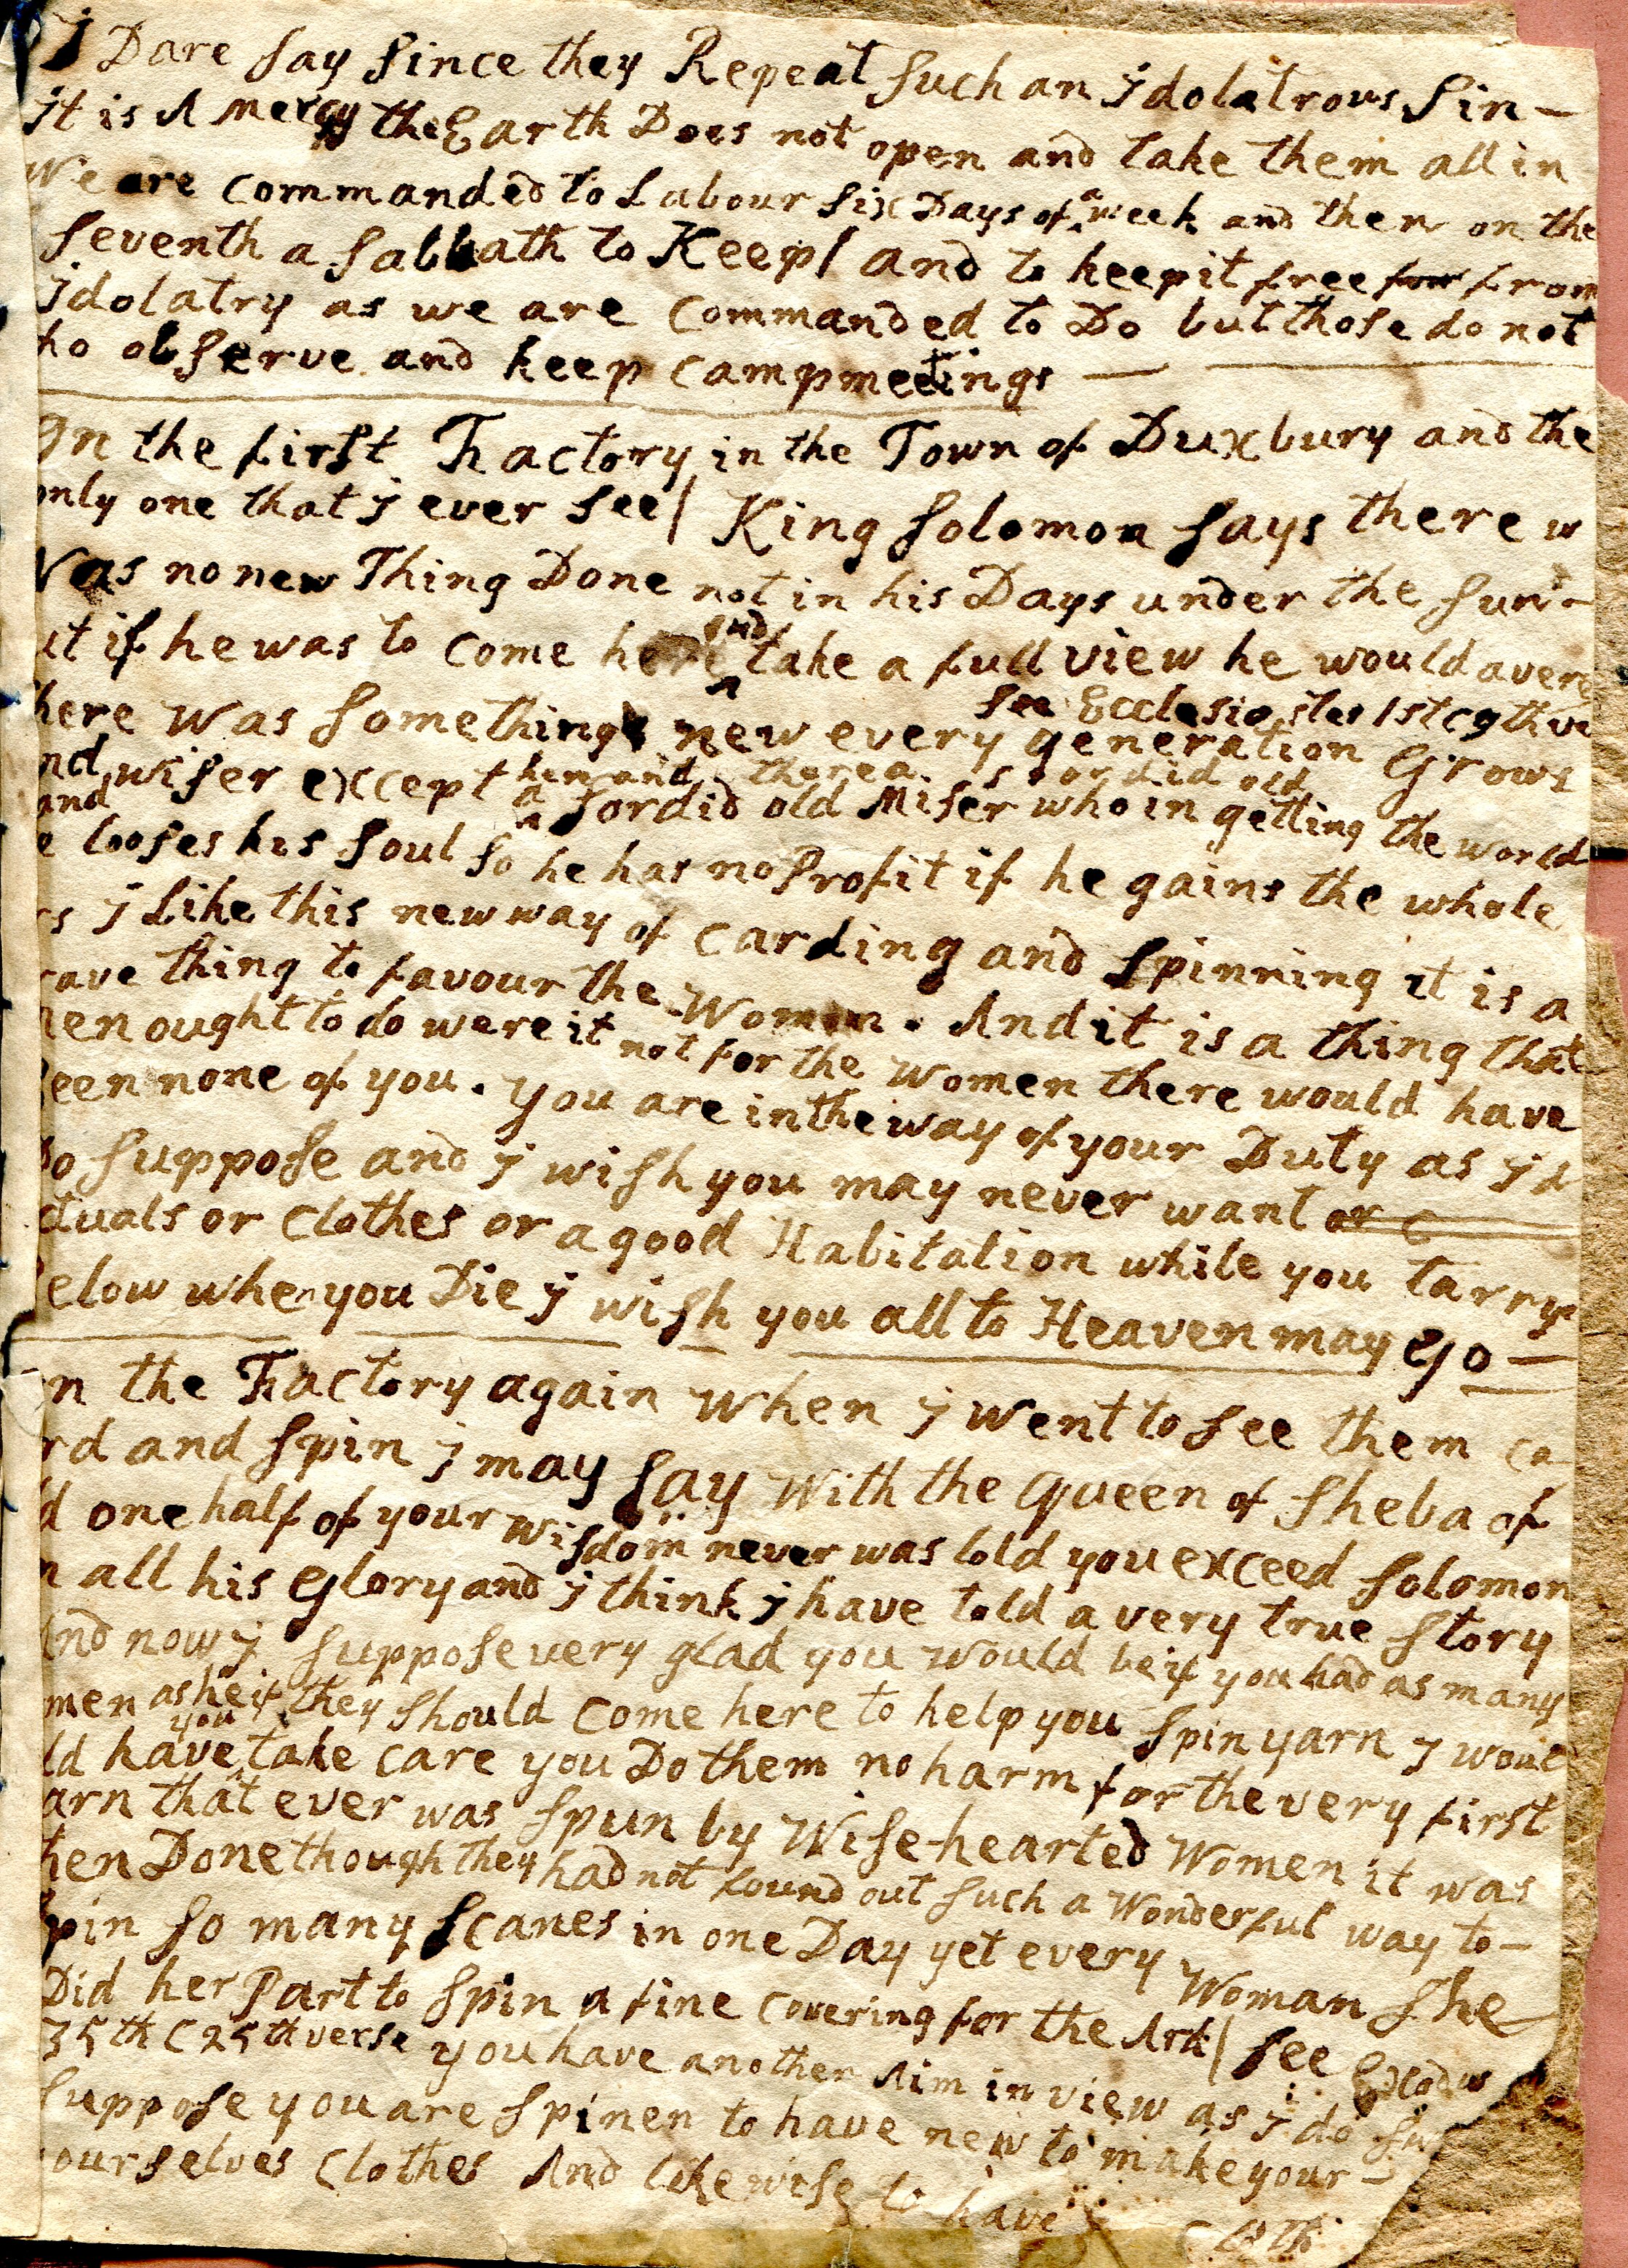 j Dare say since they Repeat such an jdolatrous sin —
jt is A mercy the Earth Does not open and take them all in
We are commanded to Labour six Days of a week and then on the
seventh a sabbath to Keep/ and to keep it free for from
jdolatry as we are commanded to Do but those do not
ho observe and keep campmeetings —
On the first Factory in the Town of Duxbury and the
only one that j ever see/ King solomon says there w
Was no new Thing Done not in his Days under the sun -
ut if he was to come here and take a full view he would avere
see Ecclesiastes 1st c 9th ve
here was somethings new every generation Grows
nd wiser except him and there a sordid old
and a sordid old Miser who in getting the world
e looses his soul so he has no Profit if he gains the whole
rs j Like this new way of carding and spinning it is a
rave thing to favour the Women. And it is a thing that
men ought to do were it not for the women there would have
been none of you. you are in the way of your Duty as j d
Do suppose and j wish you may never want or c
ctuals or clothes or a good Habitation while you tarry
Below when you Die j wish you all to Heaven may go —
on the Factory again when j went to see them ca
rd and spin j may say with the queen of sheba of
d one half of your wisdom never was told you exceed solomon
n all his glory and j think j have told a very true story
And now j suppose very glad you would be if you had as many
men as he if they should come here to help you spin yarn j woul
ld have you take care you Do them no harm for the very first
arn that ever was spun by Wise-hearted Women it was
hen Done though they had not found out such a Wonderful way to —
spin so many scanes in one Day yet every Woman she
Did her Part to spin a fine covering for the Ark/ see Exodus
35th C 25th verse you have another Aim in view as j do su
suppose you are spinen to have new to make your -
ourselves clothes And likewise to have cloth